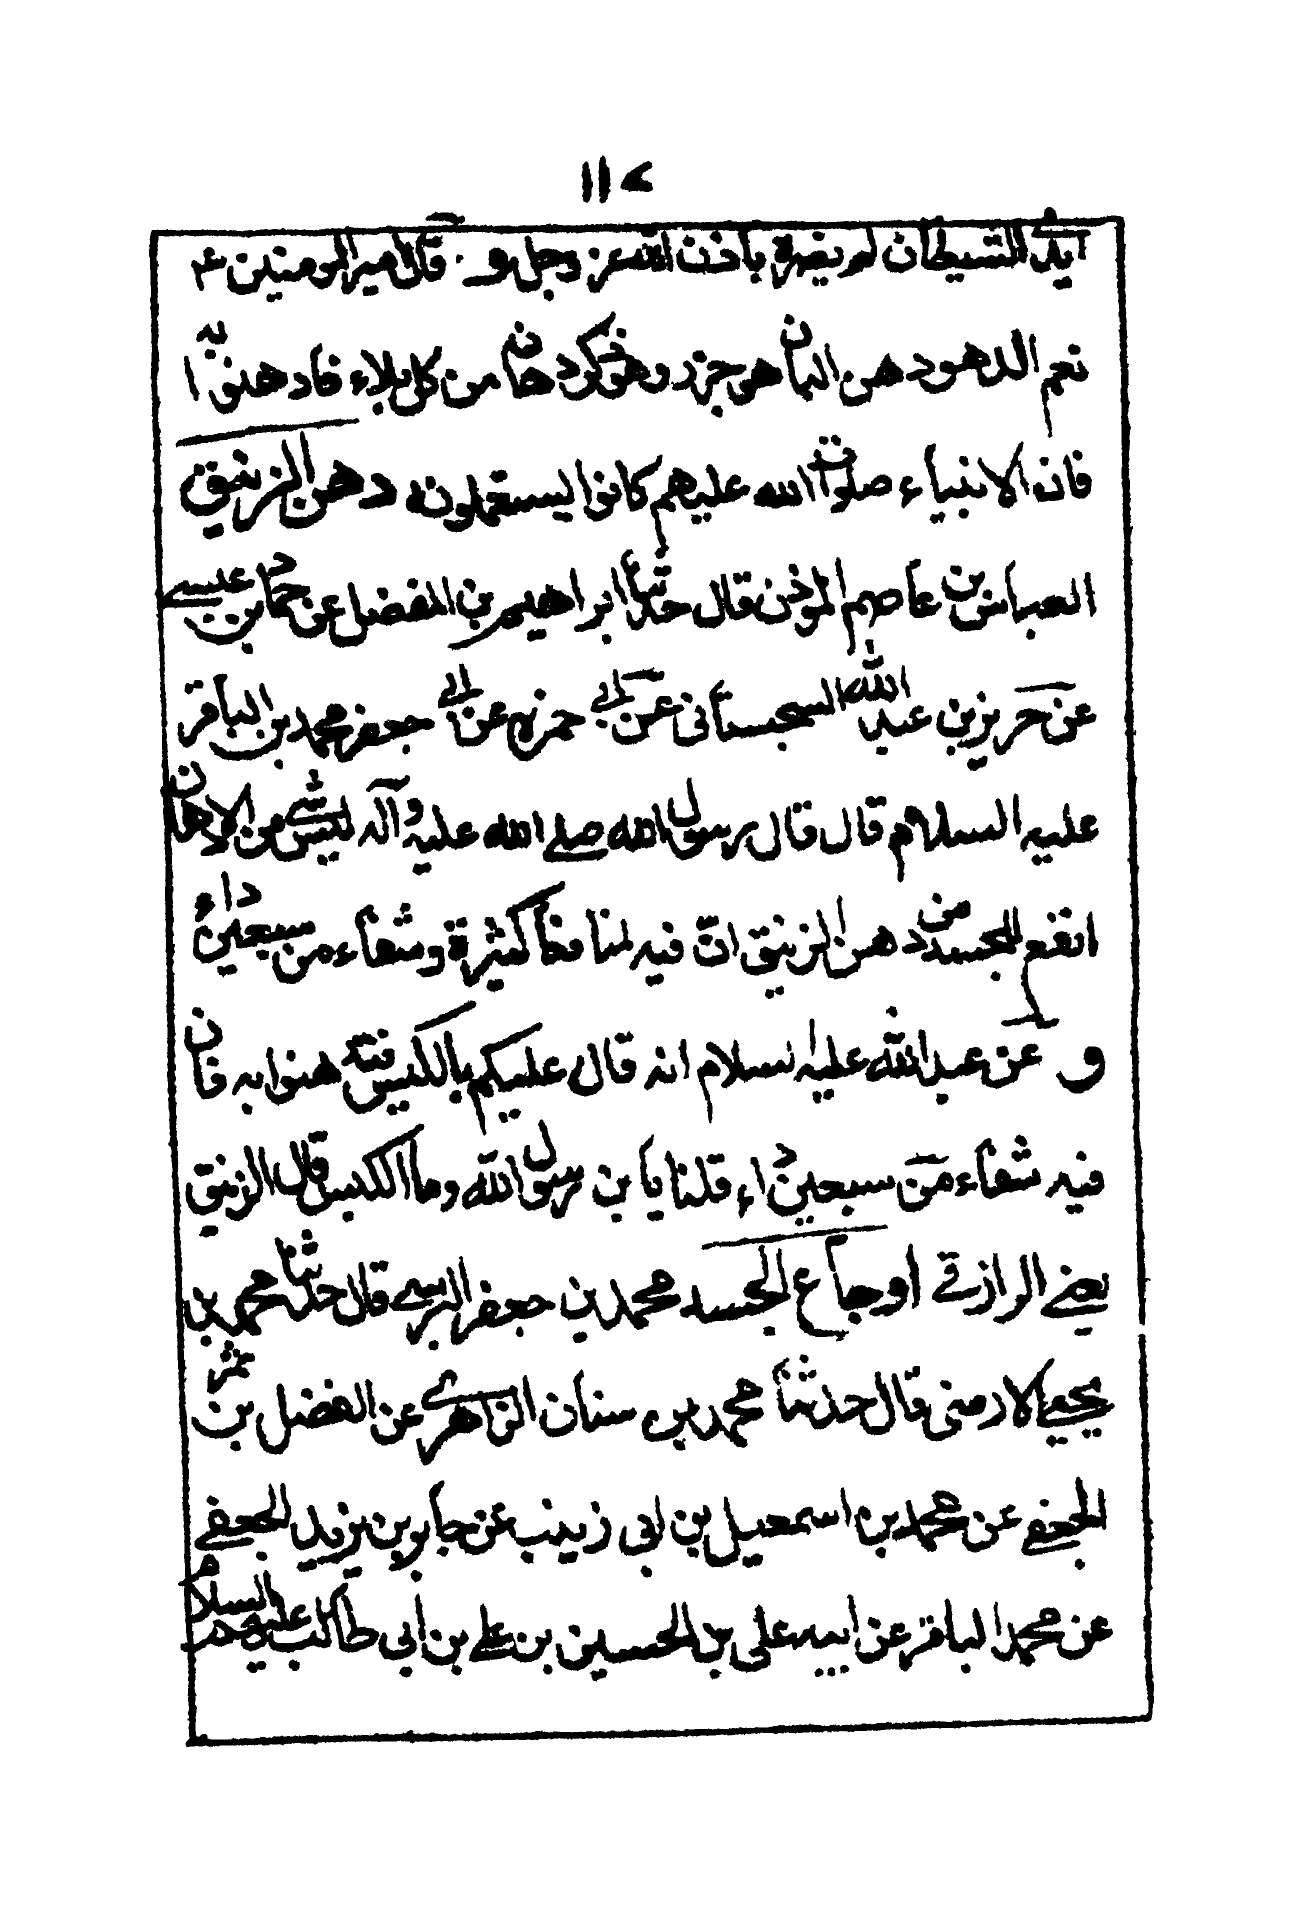 ١١٧
يد الشيطان لم يضره باذن الله عز وجل و قال امير المومنين ع
نعم الدهن دهن البان هو حرز وهو ذكر دهان من كل بلاء فادهنوا
فان الانبياء صلوات الله عليهم كانوا يستعملونه دهن الزنبق
العباس بن عاصم الموذن قال حدثنا ابراهيم بن المفضل عن حماد بن عيسى
عن حريز بن عبد الله السجستانى عن ابى حمزه عن ابى جعفر محمد بن الباقر
عليه السلام قال قال رسول الله صلى الله عليه وآله ليس شى من الادهان
انفع للجسد من دهن الزنبق ان فيه لمنافعا كثيرة وشفاء من سبعين داء
و عن عبد الله عليه السلام انه قال عليكم بالكيس فتدهنوا به فان
فيه شفاء من سبعين داء قلنا يا بن رسول الله وما الكيس قال الزنبق
يعنى الرازقى اوجاع الجسد محمد بن جعفر البرسى قال حدثنا محمد بن
يحيى الارمنى قال حدثنا محمد بن سنان الزاهرى عن المفضل بن عمر
الجعفى عن محمد بن اسمعيل بن ابى زينب عن جابر بن يزيد الجعفى
عن محمد الباقر عن ابيه على بن الحسين بن على بن ابى طالب عليهم السلام